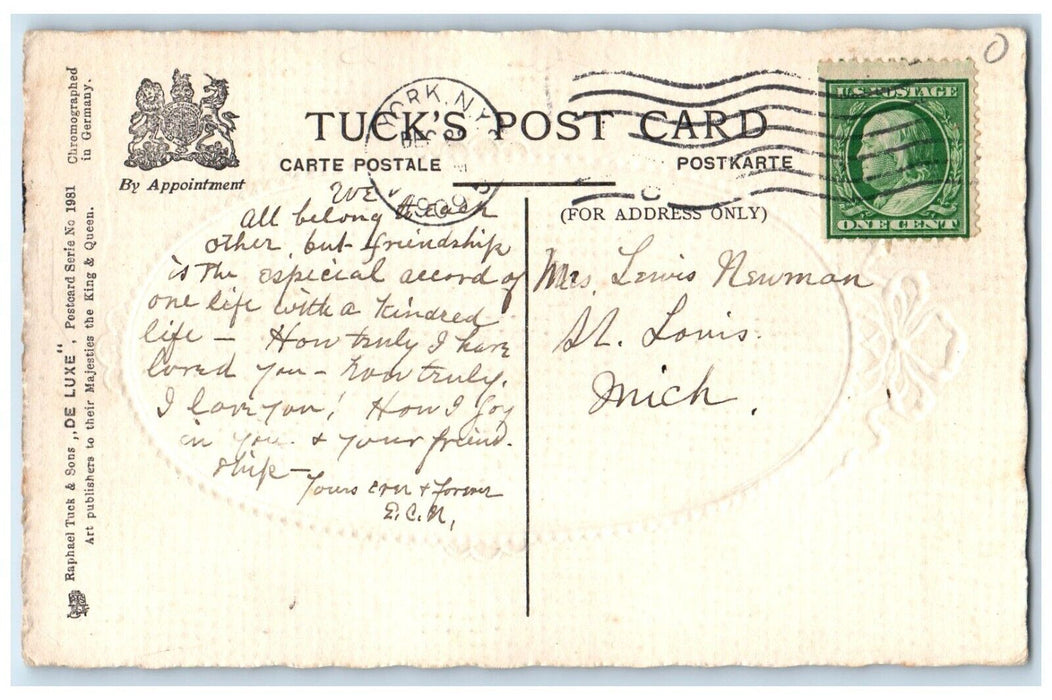 Chromographed
in Germany.
Raphael Tuck & Sons „DE LUXE", Postcard Serie No 1981
Art publishers to their Majesties the King & Queen.
By Appointment
TUCK'S POST CARD
CARTE POSTALE
POSTKARTE
(FOR ADDRESS ONLY)
YORK, N.Y.
DEC
1909
U.S. POSTAGE
ONE CENT
We
All belong to each
other but friendship
is the especial accord of
one life with a kindred
life – How truly I have
loved you – how truly.
I love you! How I joy
in you & your friend-
ship –
Yours ever & forever
E.C.N.
Mrs. Lewis Newman
St. Louis.
Mich.
0